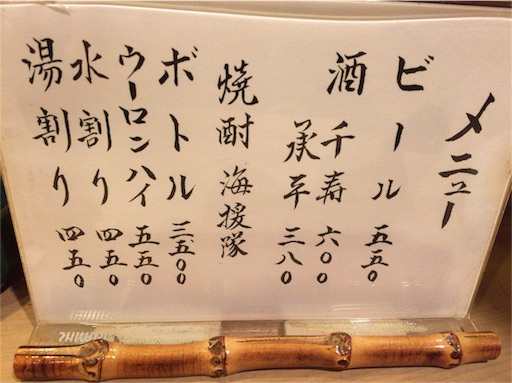 メニュー
ビール 五五〇
酒 千寿 六〇〇
承平 三八〇
焼酎 海援隊
ボトル 三五〇〇
ウーロンハイ 五五〇
水割り 四五〇
湯割り 四五〇